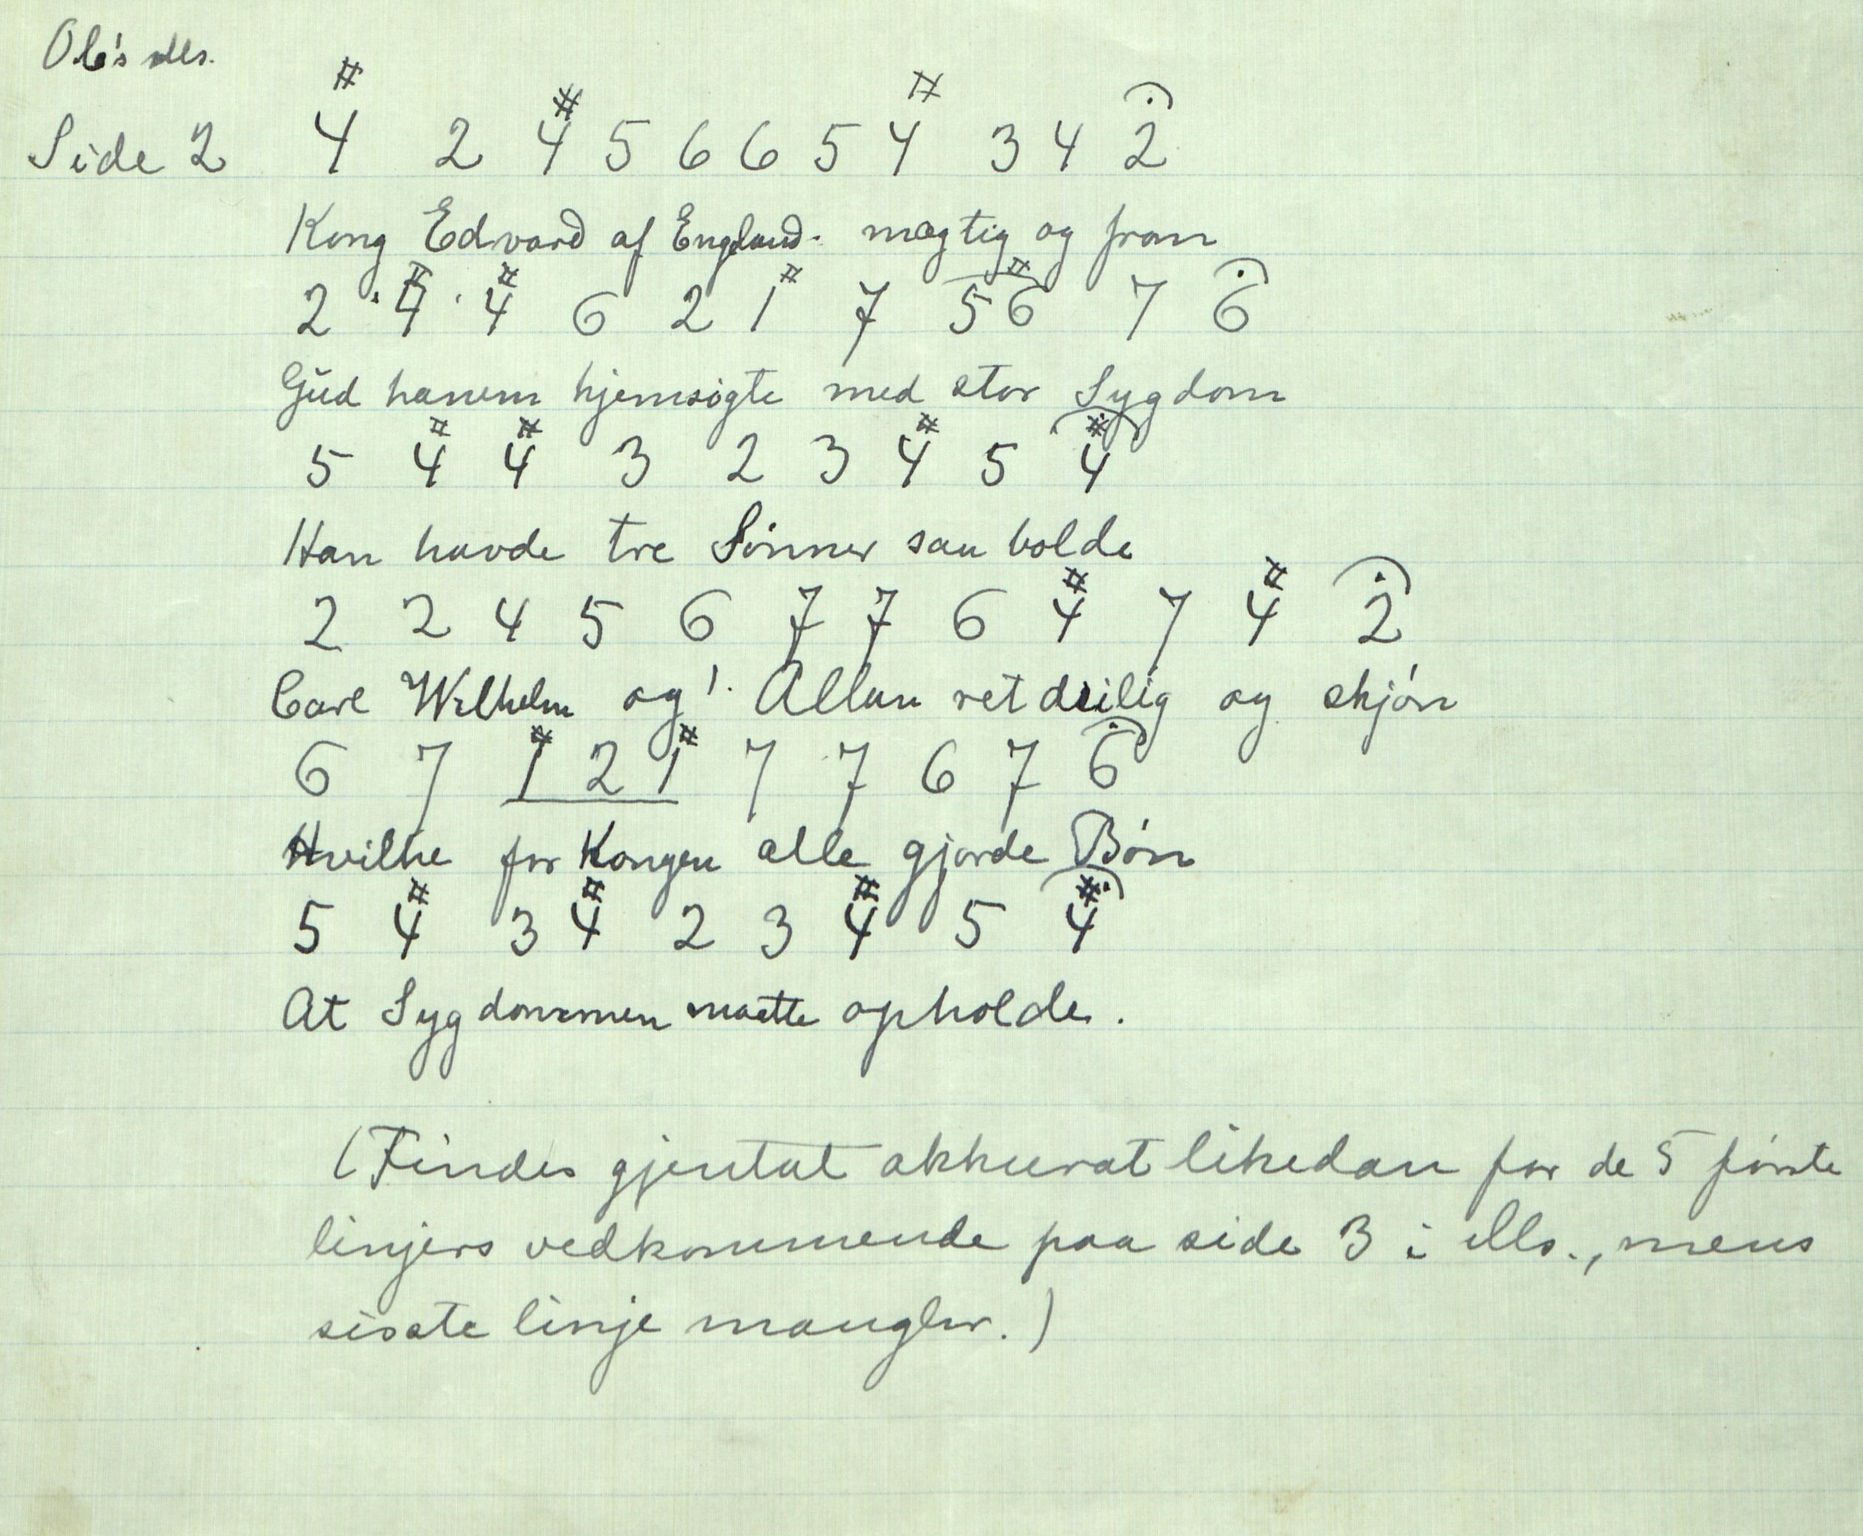 Ole's Ms.
Side 2 #4 2 #4 5 6 6 5 #4 3 4 2
Kong Edvard af England mægtig og from
2 #4 #4 6 2 1# 7 5 #6 7 6
Gud hanem hjemsøgte med stor Sygdom
5 #4 #4 3 2 3 #4 5 #4
Han havde tre Sønner saa bolde
2 2 4 5 6 7 7 6 #4 7 #4 2
Carl Wilhelm og Allan ret deilig og skjøn
6 7 #1 2 1# 7 7 6 7 6
Hvilke for Kongen alle gjorde Bøn
5 #4 3 #4 2 3 #4 5 #4
At Sygdommen maatte opholde.
(Findes gjentat akkurat likedan for de 5 første
linjers vedkommende paa side 3 i Ms., mens
sisste linje mangler.)